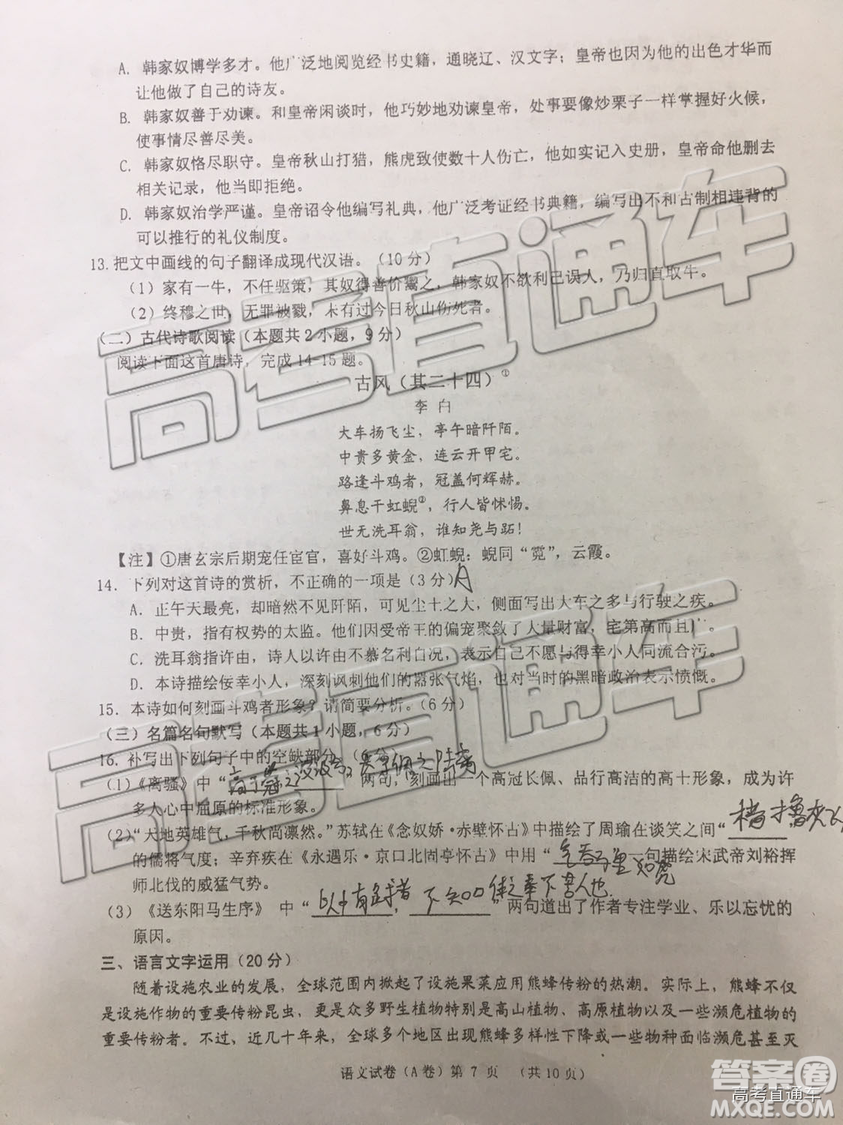 A. 韩家奴博学多才。他广泛地阅览经书史籍，通晓辽、汉文字；皇帝也因为他的出色才华而
让他做了自己的诗友。
B. 韩家奴善于劝谏。和皇帝闲谈时，他巧妙地劝谏皇帝，处事要像炒栗子一样掌握好火候，
使事情尽善尽美。
C. 韩家奴恪尽职守。皇帝秋山打猎，熊虎致使数十人伤亡，他如实记入史册，皇帝命他删去
相关记录，他当即拒绝。
D. 韩家奴治学严谨。皇帝诏令他编写礼典，他广泛考证经书典籍，编写出不和古制相违背的
可以推行的礼仪制度。
13. 把文中画线的句子翻译成现代汉语。（10分）
（1）家有一牛，不任驱策，其奴得善价鬻之，韩家奴不欲利己误人，乃归直取牛。
（2）终穆之世，无罪被戮，未有过今日秋山伤死者。
（二）古代诗歌阅读（本题共2小题，9分）
阅读下面这首唐诗，完成14-15题。
古风（其二十四）①
李白
大车扬飞尘，亭午暗阡陌。
中贵多黄金，连云开甲宅。
路逢斗鸡者，冠盖何辉赫。
鼻息干虹蜺②，行人皆怵惕。
世无洗耳翁，谁知尧与跖！
【注】①唐玄宗后期宠任宦官，喜好斗鸡。②虹蜺：蜺同“霓”，云霞。
14. 下列对这首诗的赏析，不正确的一项是（3分）A
A. 正午天最亮，却暗然不见阡陌，可见尘土之大，侧面写出大车之多与行驶之疾。
B. 中贵，指有权势的太监。他们因受帝王的偏宠聚敛了大量财富，宅第高而且广。
C. 洗耳翁指许由，诗人以许由不慕名利自况，表示自己不愿与得幸小人同流合污。
D. 本诗描绘佞幸小人，深刻讽刺他们的嚣张气焰，也对当时的黑暗政治表示愤慨。
15. 本诗如何刻画斗鸡者形象？请简要分析。（6分）
（三）名篇名句默写（本题共1小题，6分）
16. 补写出下列句子中的空缺部分。（6分）
（1）《离骚》中“高余冠之岌岌兮，长余佩之陆离”两句，刻画出一个高冠长佩、品行高洁的高士形象，成为许
多人心中屈原的标准形象。
（2）“天地英雄气，千秋尚凛然。”苏轼在《念奴娇·赤壁怀古》中描绘了周瑜在谈笑之间“樯橹灰飞
的儒将气度；辛弃疾在《永遇乐·京口北固亭怀古》中用“气吞万里如虎一句描绘宋武帝刘裕挥
师北伐的威猛气势。
（3）《送东阳马生序》中“以中有足乐者，不知口体之奉不若人也”两句道出了作者专注学业、乐以忘忧的
原因。
三、语言文字运用（20分）
随着设施农业的发展，全球范围内掀起了设施果菜应用熊蜂传粉的热潮。实际上，熊蜂不仅
是设施作物的重要传粉昆虫，更是众多野生植物特别是高山植物、高原植物以及一些濒危植物的
重要传粉者。不过，近几十年来，全球多个地区出现熊蜂多样性下降或一些物种面临濒危甚至灭
语文试卷（A卷）第 7 页 （共10页）
高考直通车
高考直通车
答案圈
高考直通车
MXQE.COM